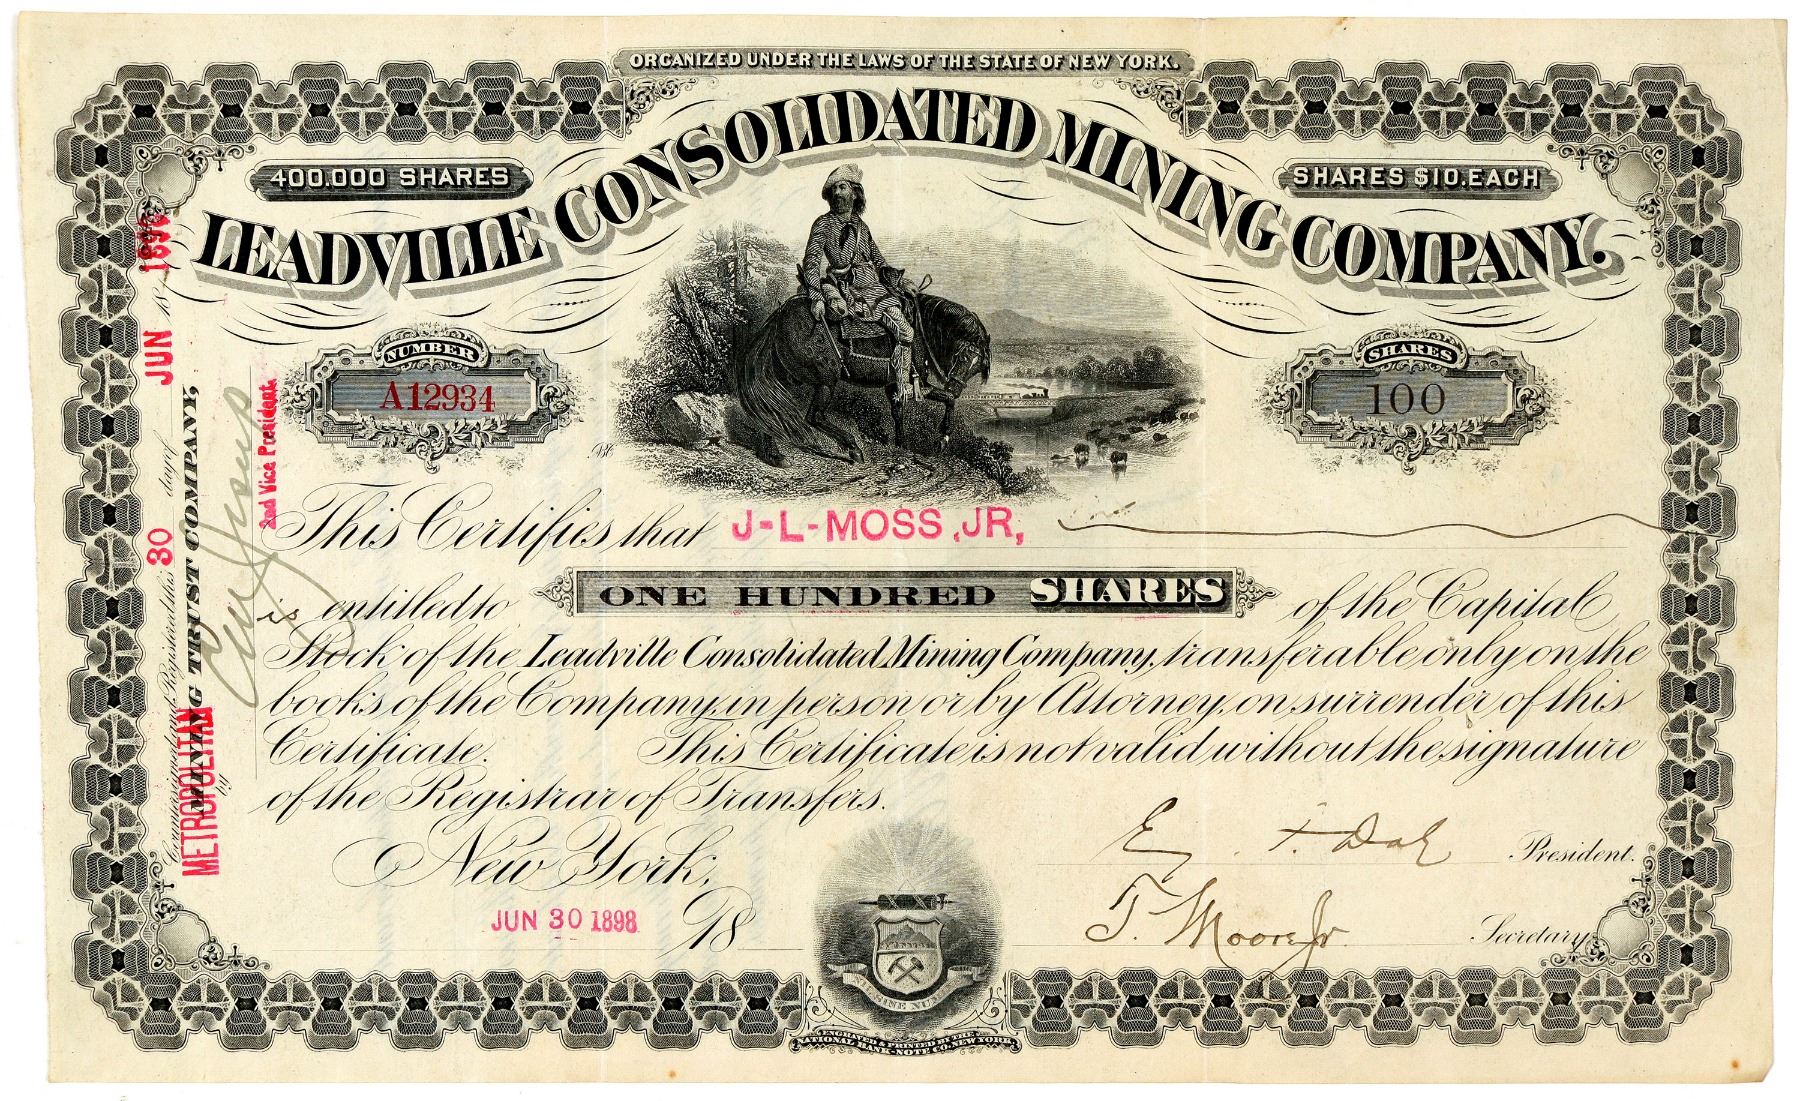 ORGANIZED UNDER THE LAWS OF THE STATE OF NEW YORK.
400.000 SHARES
SHARES $10. EACH
LEADVILLE CONSOLIDATED MINING COMPANY.
NUMBER
A12934
SHARES
100
This Certifies that J-L-MOSS, JR,
is entitled to ONE HUNDRED SHARES of the Capital
Stock of the Leadville Consolidated Mining Company, transferable only on the
books of the Company, in person or by Attorney, on surrender of this
Certificate. This Certificate is not valid without the signature
of the Registrar of Transfers.
New York,
JUN 30 1898 18
President.
T. Moore Jr. Secretary.
NIL SINE NUMINE
ENGRAVED & PRINTED BY THE
NATIONAL BANK-NOTE CO. NEW YORK.
Countersigned and Registered this 30 day of JUN 18
METROPOLITAN
MINING TRUST COMPANY,
by
2nd Vice President.